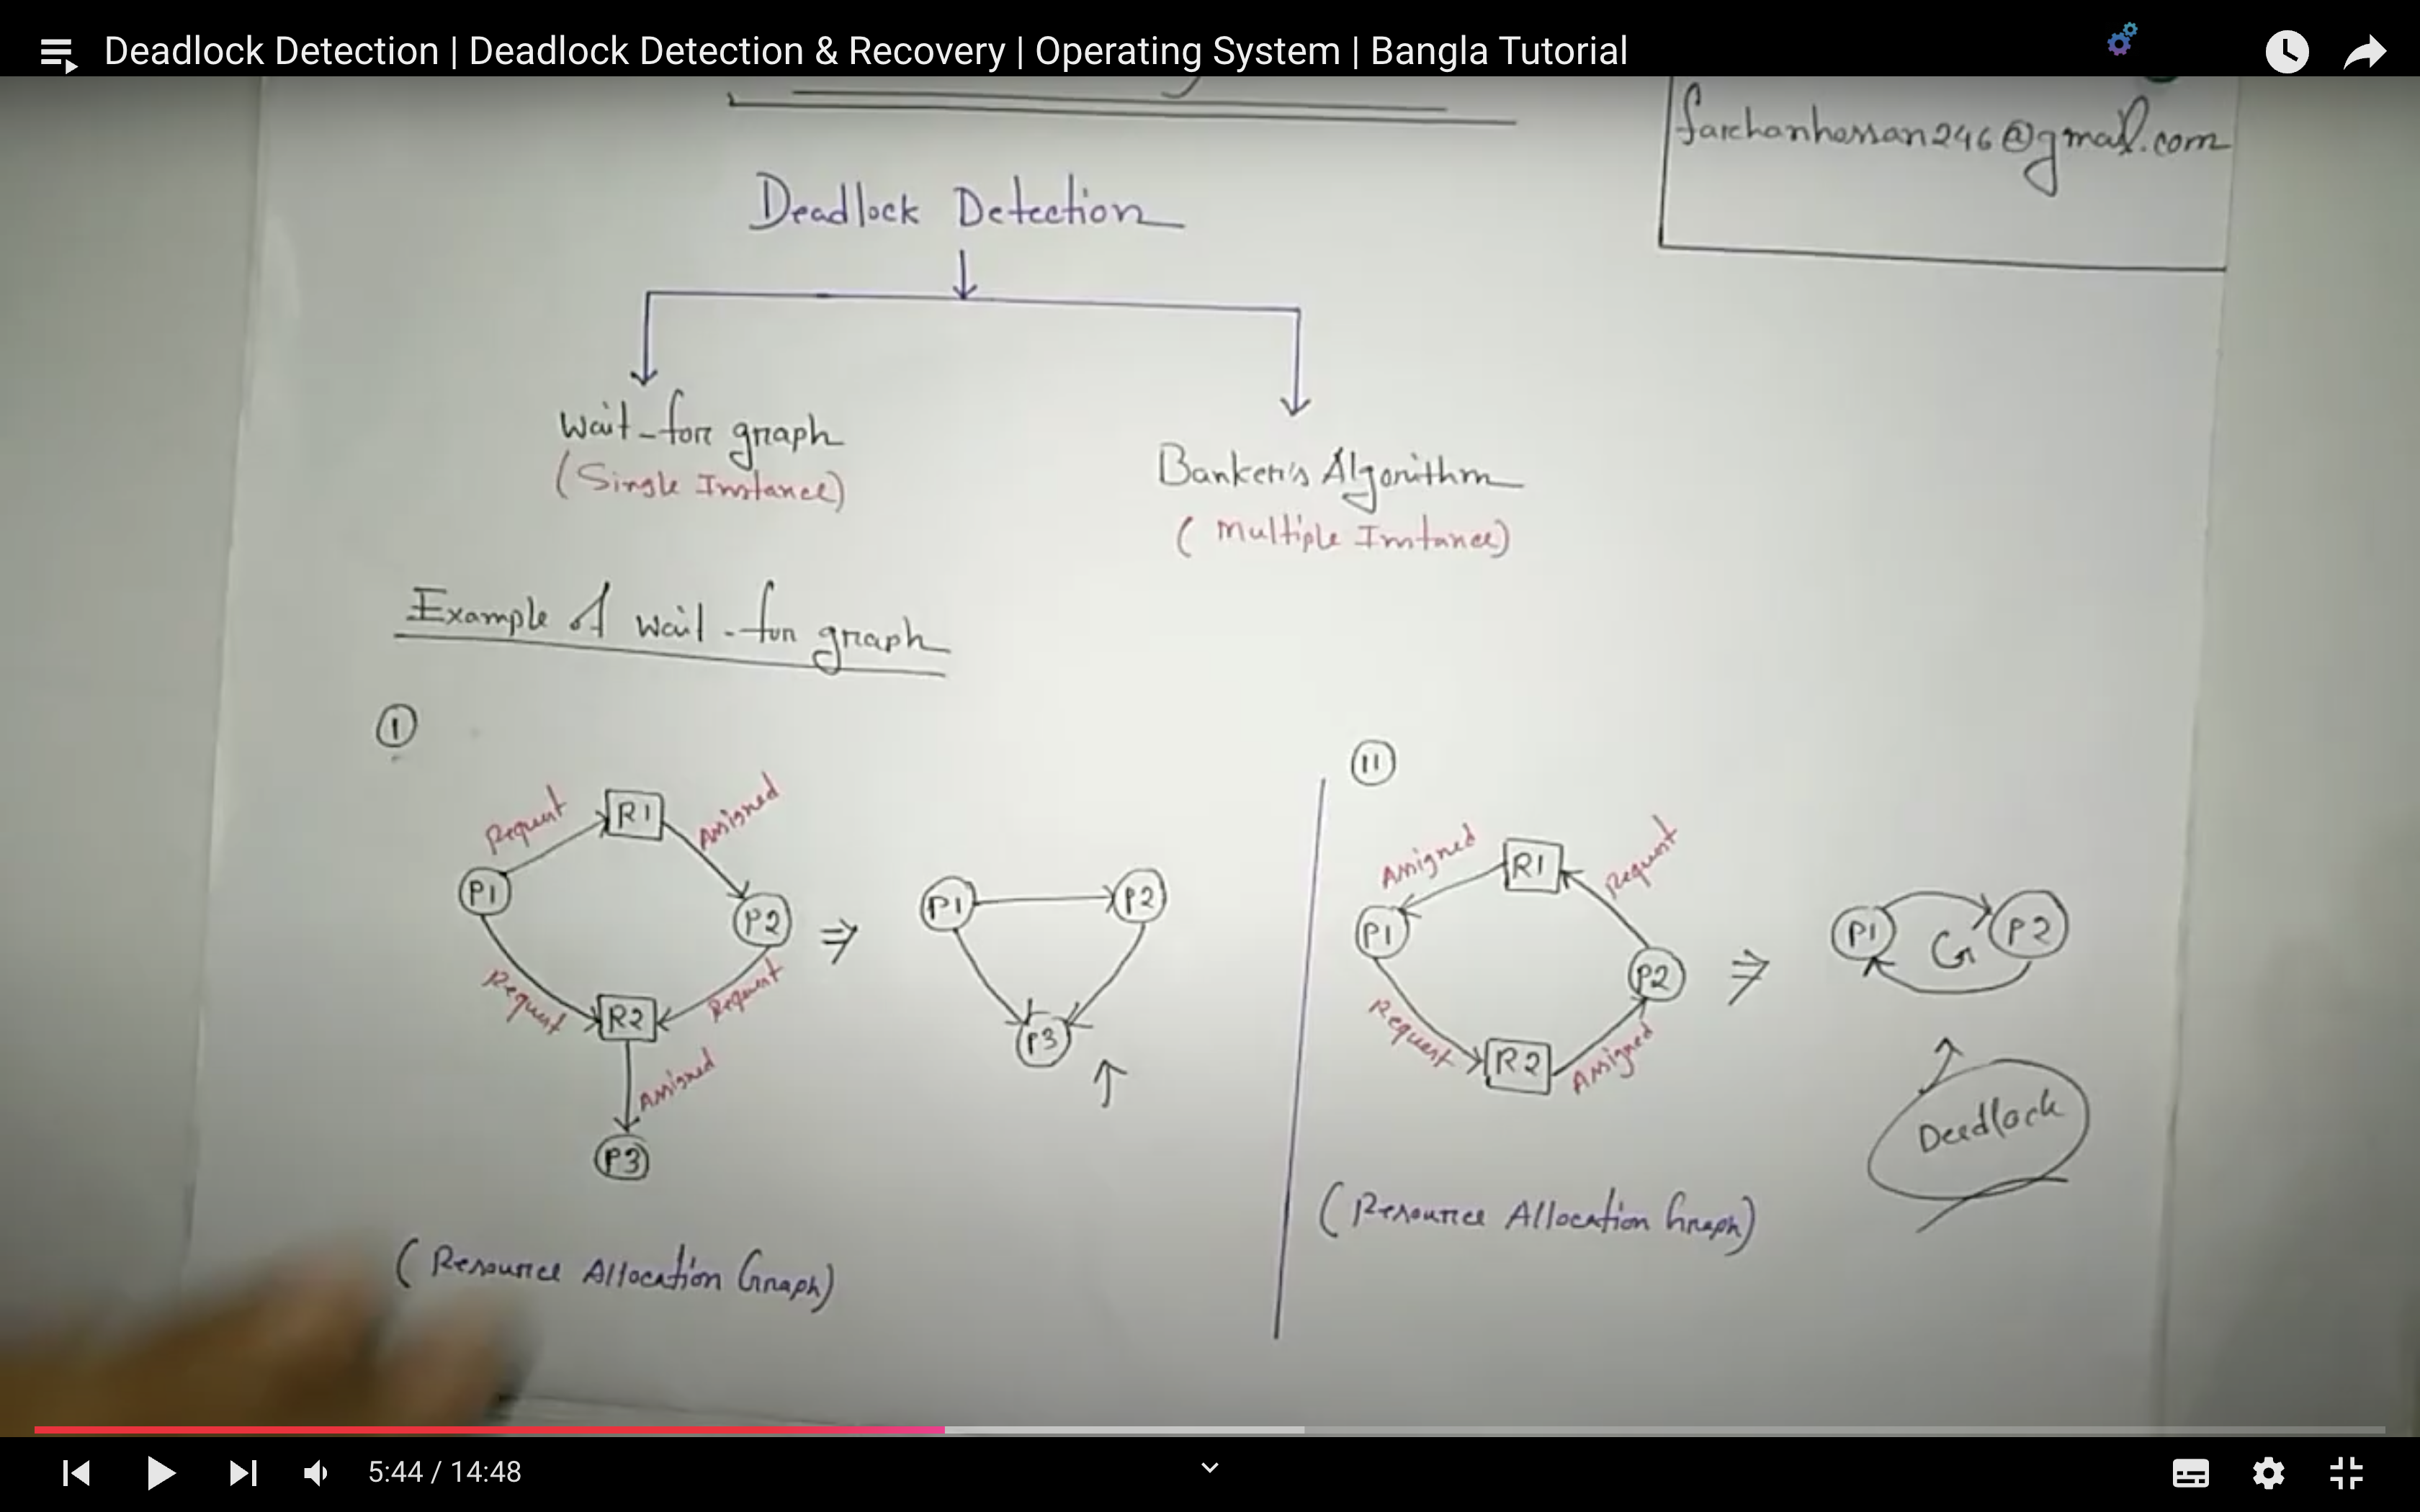 Deadlock Detection | Deadlock Detection & Recovery | Operating System | Bangla Tutorial
farhanhossan246@gmail.com
Deadlock Detection
Wait-for graph
(Single Instance)
Banker's Algorithm
(Multiple Instance)
Example of wait-for graph
I
Request R1 Assigned
P1 P2
Request R2 Request
Assigned
P3
⇒
P1 P2
P3
(Resource Allocation Graph)
II
Assigned R1 Request
P1 P2
Request R2 Assigned
⇒
P1 P2
Deadlock
(Resource Allocation Graph)
5:44 / 14:48